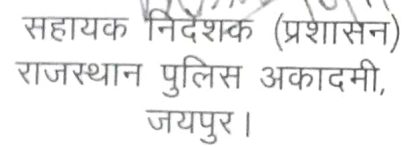 सहायक निदेशक (प्रशासन)
राजस्थान पुलिस अकादमी,
जयपुर।